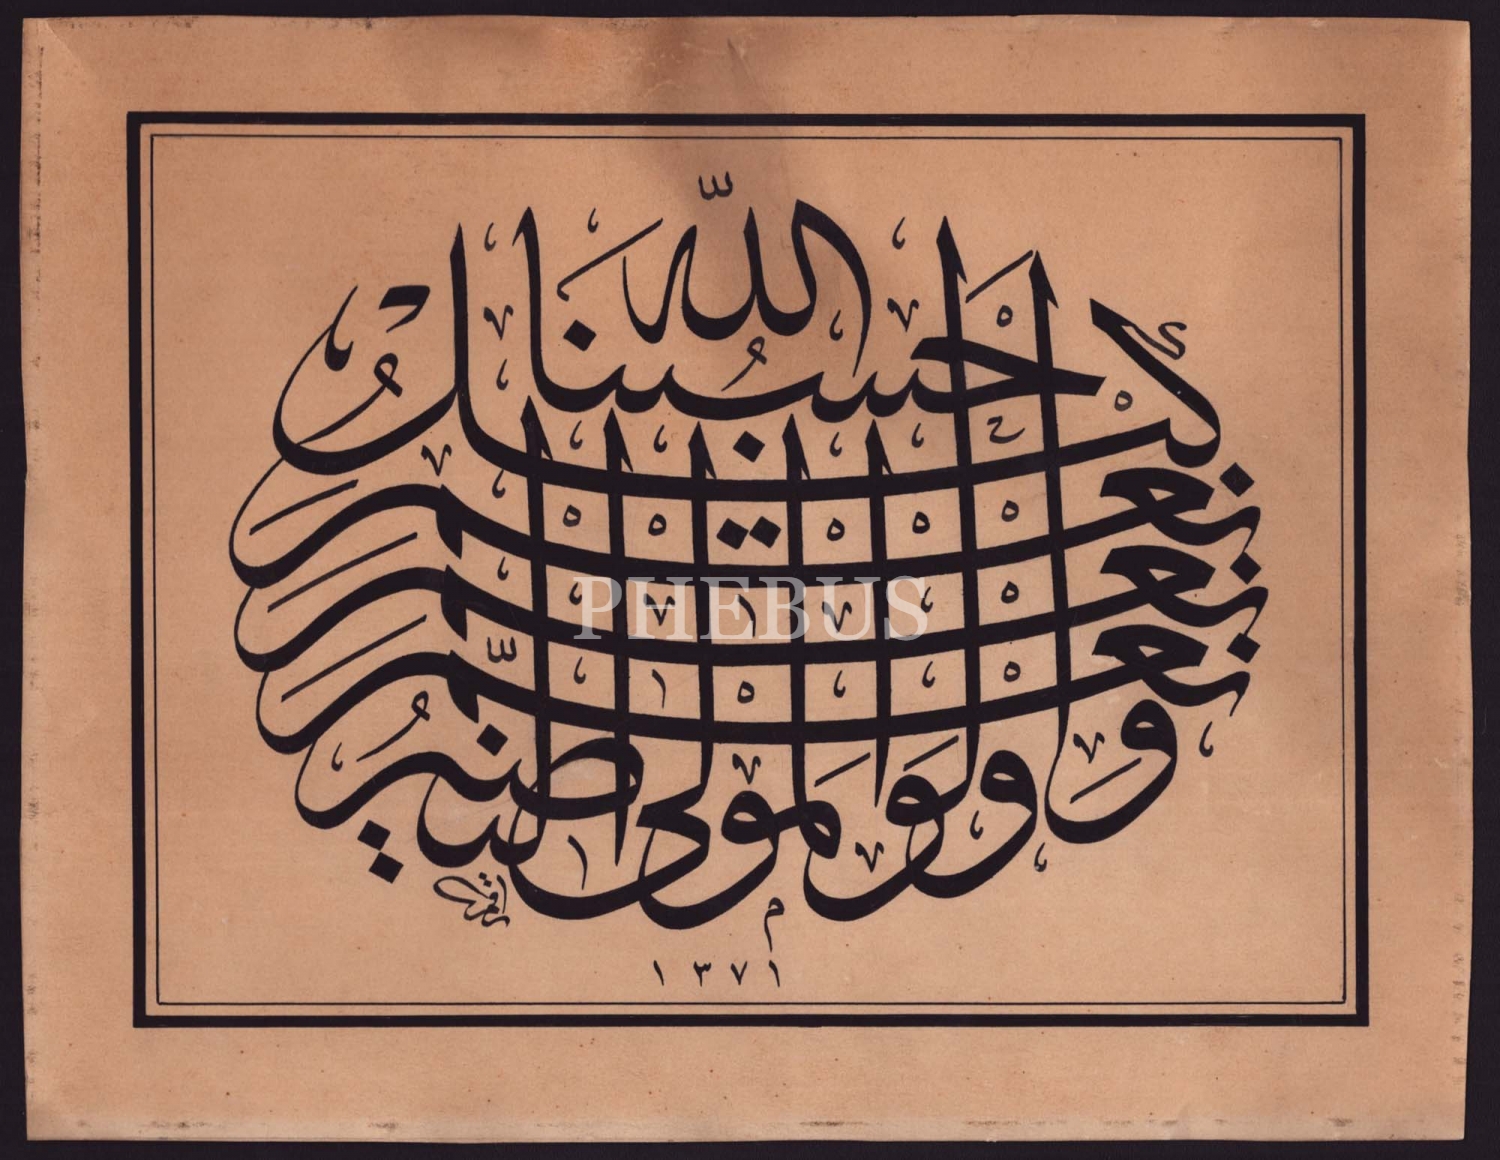 حسبنا الله ونعم الوكيل
نعم المولى ونعم النصير
PHEBUS
م
١٣٧١